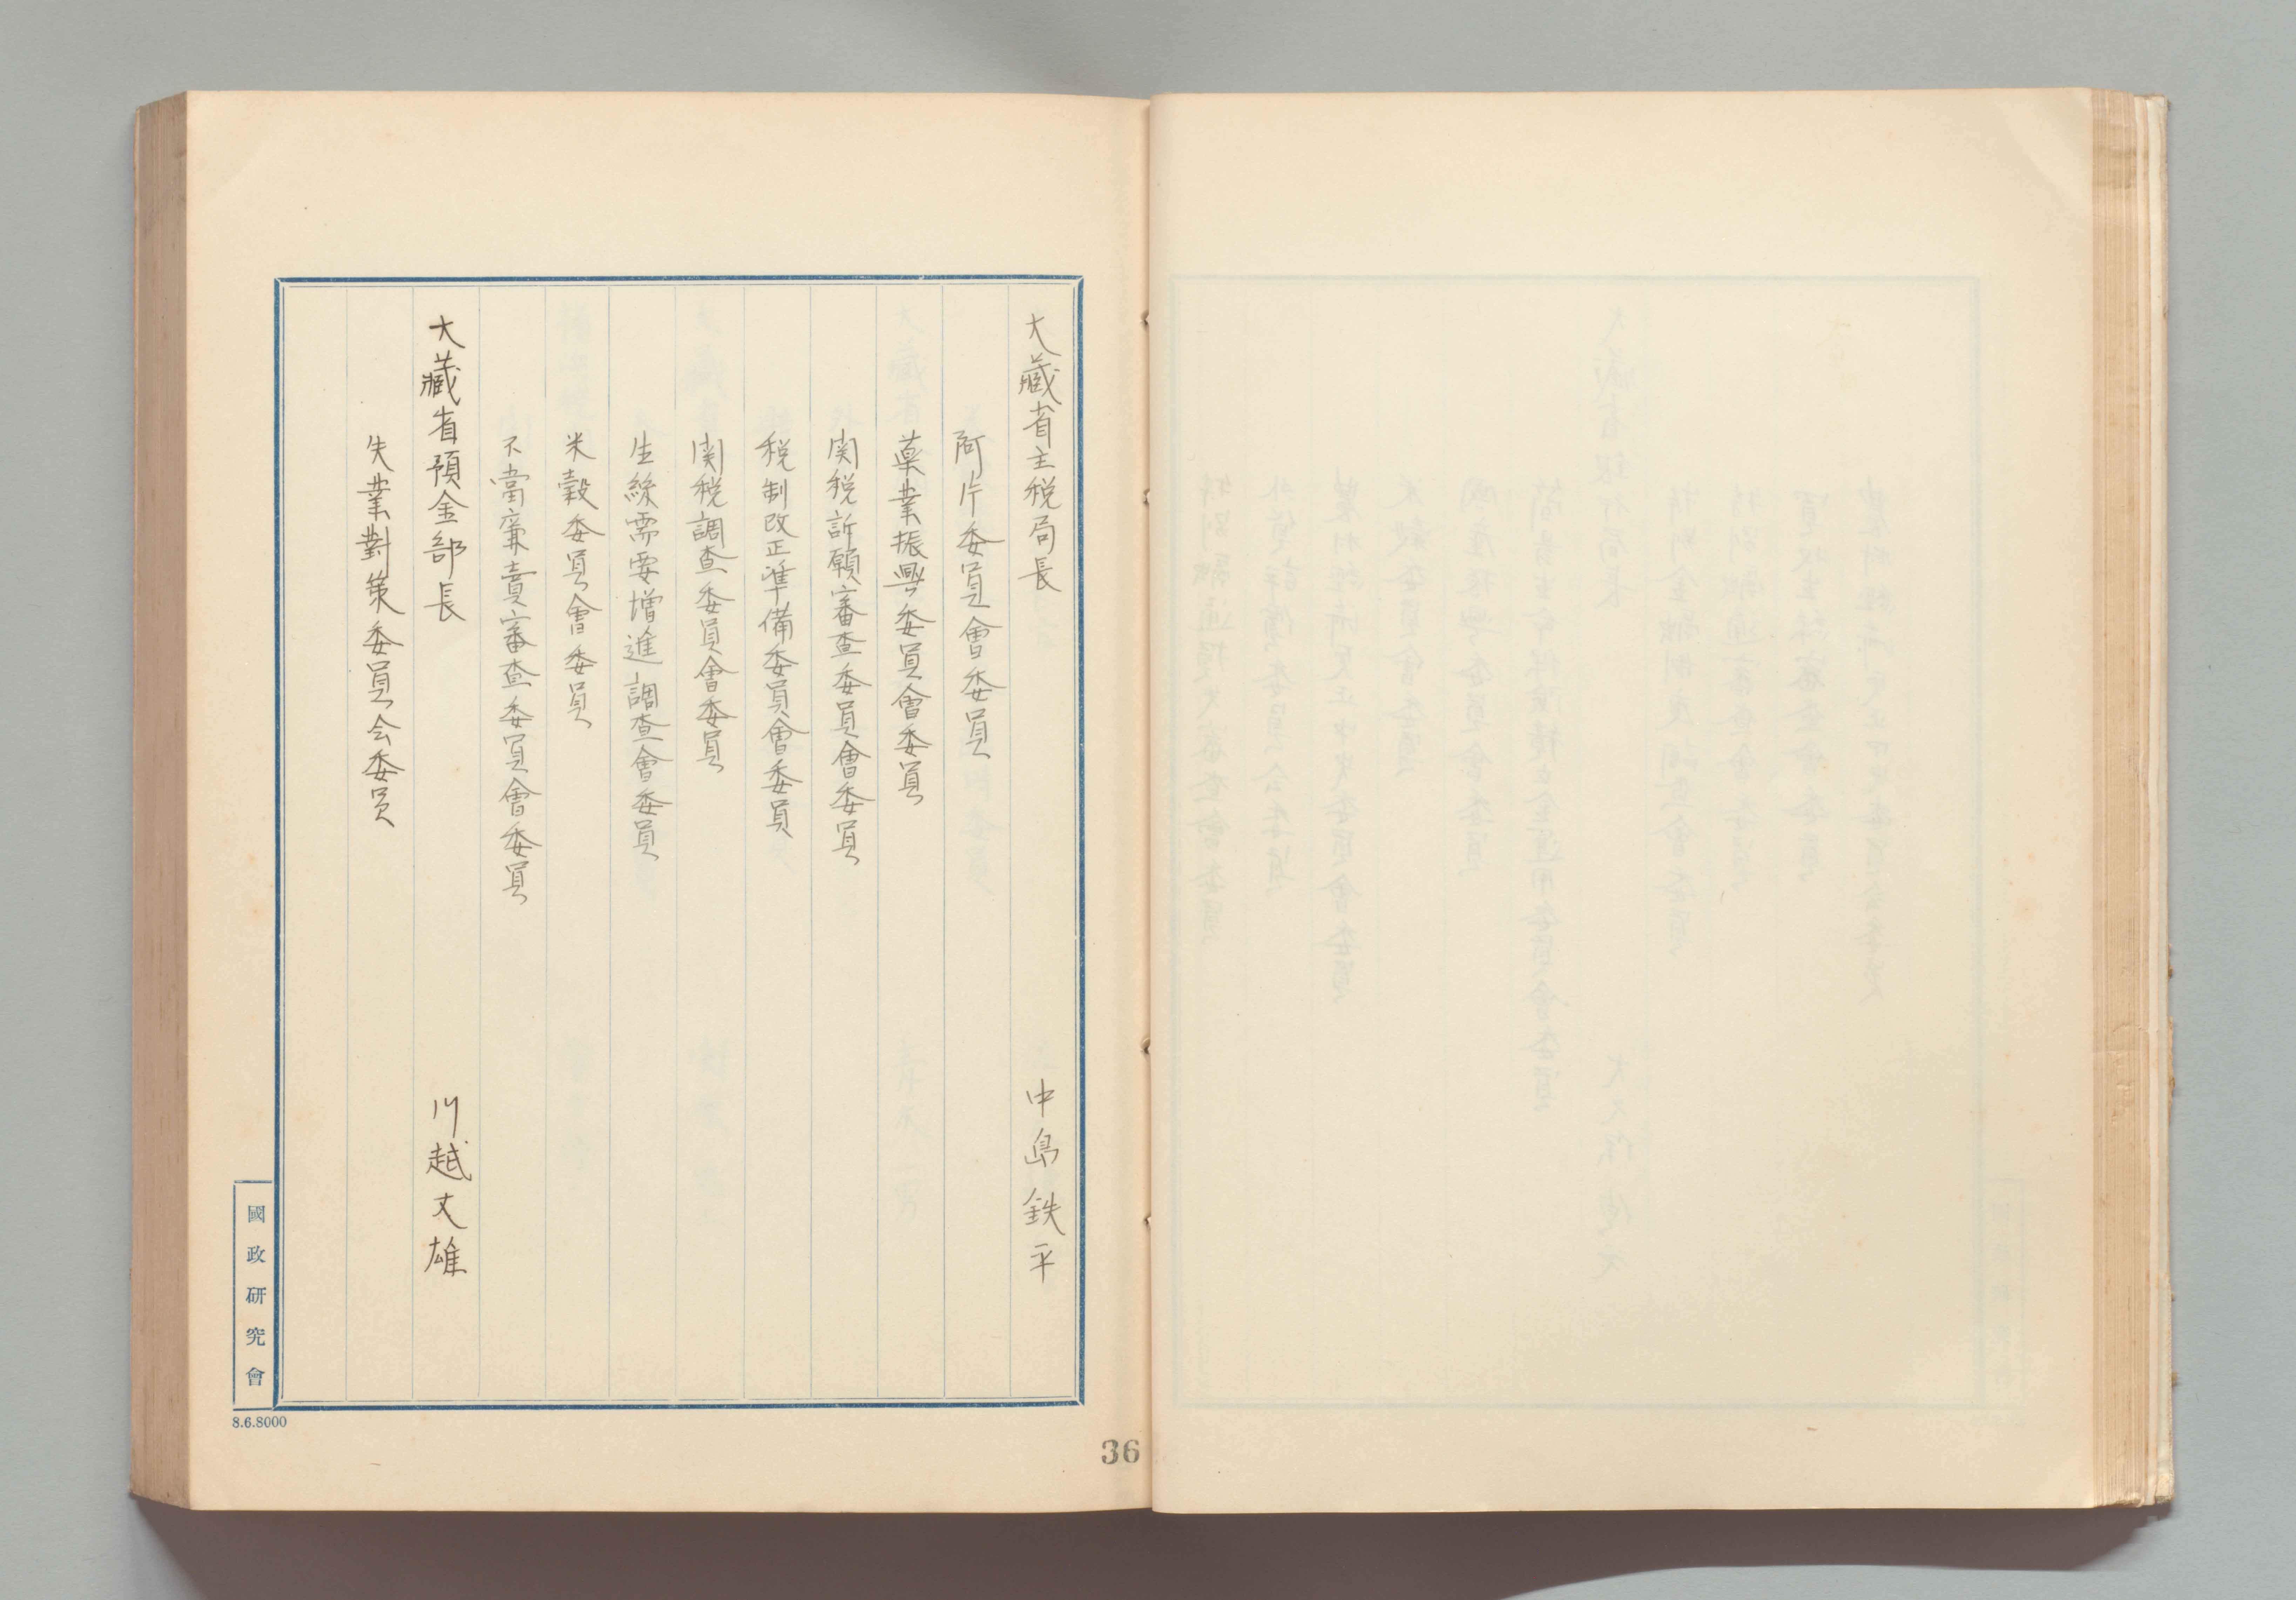 大藏省主税局長 中島鉄平
阿片委員會委員
藥業振興委員會委員
関税訴願審査委員會委員
税制改正準備委員會委員
関税調査委員會委員
生絲需要増進調査會委員
米穀委員會委員
不當廉賣審査委員會委員
大藏省預金部長 川越丈雄
失業對策委員会委員
國政研究會
8.6.8000
36